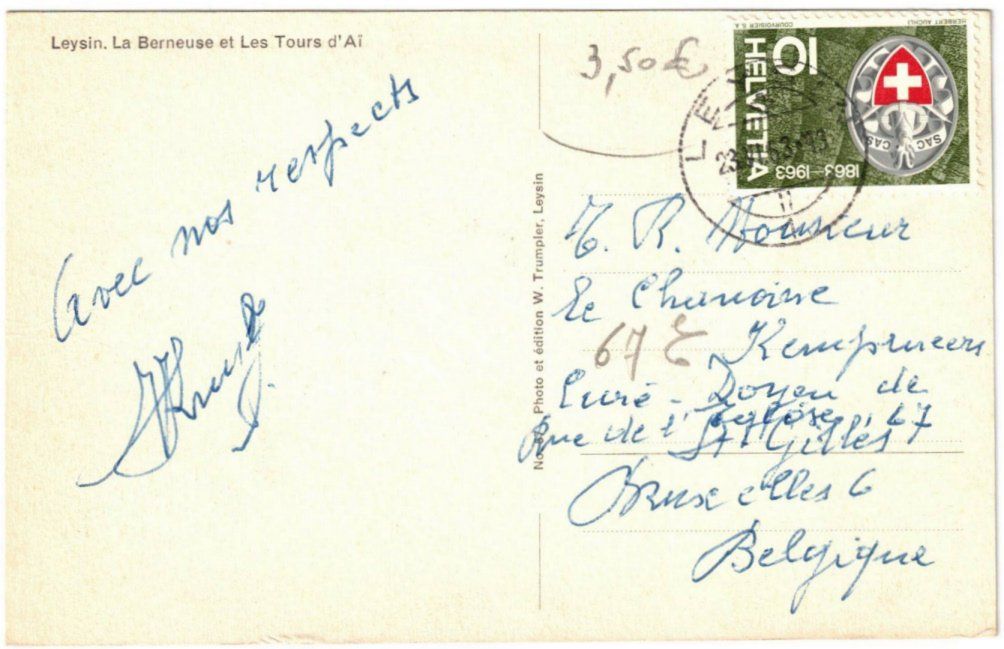 Leysin. La Berneuse et Les Tours d'Aï
Avec nos respects
3,50 €
COURVOISIER S A
HERBERT AUCHLI
HELVETIA
10
SAC CAS
1863 – 1963
No Photo et édition W. Trumpler, Leysin
T. R. Monsieur
Le Chanoine
Kempeneers
67
Curé - Doyen de
St Gilles
Rue de l'église, 67
Bruxelles 6
Belgique